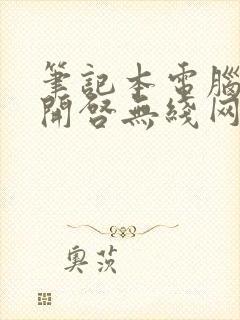 筆記本電腦
開啓無綫网
奥茨